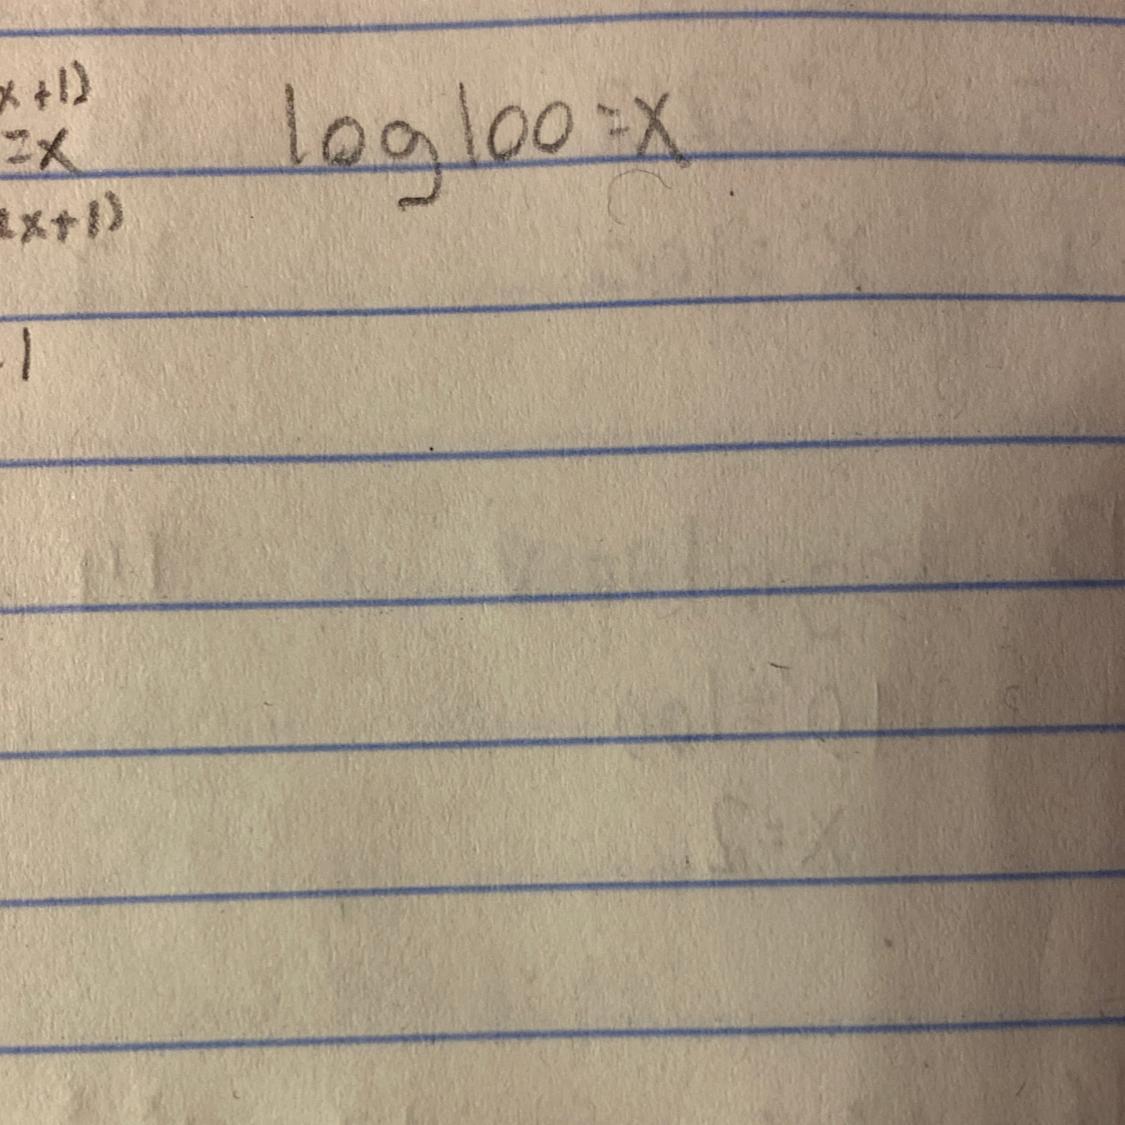 x+1)
log 100 = x
=x
2x+1)
1